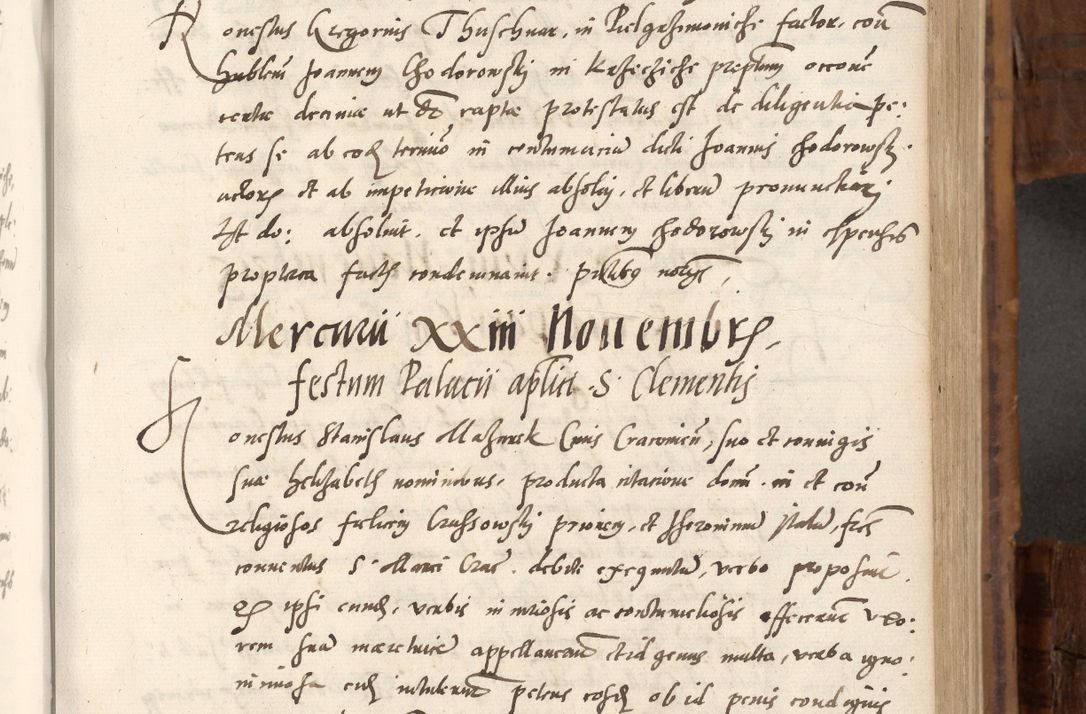 Honestus Gregorius Thuschnar, in Pielgrzimowiche factor, con̄
hūblem̄ Joannem Chodorowskj in Krzeczicze preptum occone
certe decimae ut dt rapte protestatus est de diligentia pe:
tens se ab eod termio in contumaciam dicti Joannis Chodorowskj
actoris et ab impeticione illius absolvj, et liberū pronunctiarj
Et do: absolvit, et ipsū Joannem Chodorowskj in expensis
propterea factis condemnavit. pntibus notis,
Mercurii XXIII Nouembris,
festum Palacii aplici S. Clementis
Honestus Stanislaus Mazurek Civis Cracovien̄, suo et coniugis
suae Helizabeth nominibus, producta citacione dom̄. in et con̄
religiosos felicem Crussowskj priorem, et Hieronimū Italū, fres
conuentus S. Marci Crac. debite exequuta, verbo proposuit
Qs ipsi eund, verbis iniuriosis ac contumeliosis affecerunt vxo:
rem suā meretricē appellauerūt et id genus multa, verba igno:
miniosa eid intulerunt petens eosd ob id penis condignis